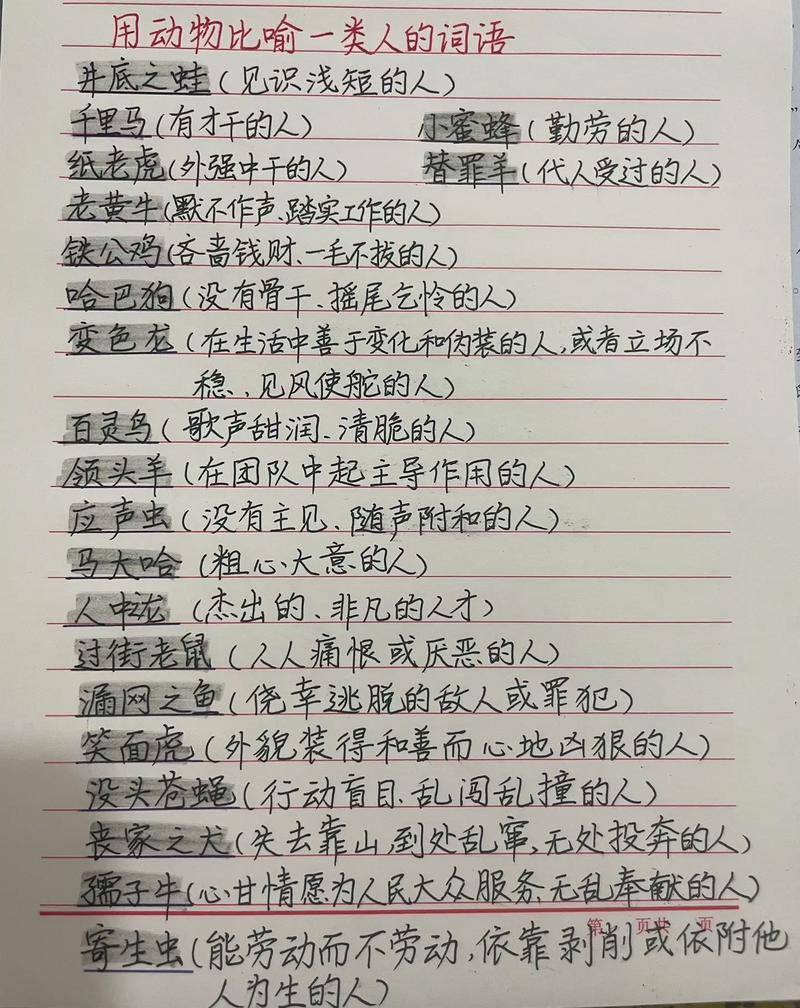 用动物比喻一类人的词语
井底之蛙(见识浅短的人)
千里马(有才干的人) 小蜜蜂(勤劳的人)
纸老虎(外强中干的人) 替罪羊(代人受过的人)
老黄牛(默不作声、踏实工作的人)
铁公鸡(吝啬钱财、一毛不拔的人)
哈巴狗(没有骨干、摇尾乞怜的人)
变色龙(在生活中善于变化和伪装的人,或者立场不
稳、见风使舵的人)
百灵鸟(歌声甜润、清脆的人)
领头羊(在团队中起主导作用的人)
应声虫(没有主见、随声附和的人)
马大哈(粗心大意的人)
人中龙(杰出的、非凡的人才)
过街老鼠(人人痛恨或厌恶的人)
漏网之鱼(侥幸逃脱的敌人或罪犯)
笑面虎(外貌装得和善而心地凶狠的人)
没头苍蝇(行动盲目、乱闯乱撞的人)
丧家之犬(失去靠山,到处乱窜,无处投奔的人)
孺子牛(心甘情愿为人民大众服务、无乱奉献的人)
第 页共 页
寄生虫(能劳动而不劳动,依靠剥削或依附他
人为生的人)